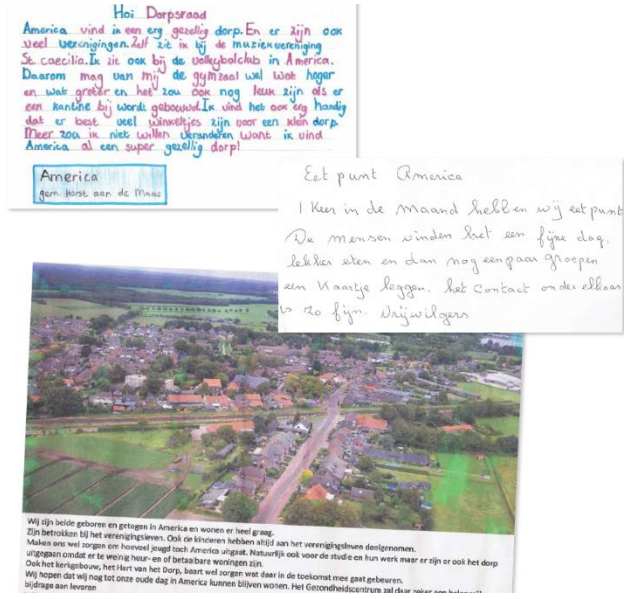 Hoi Dorpsraad
America vind ik een erg gezellig dorp. En er zijn ook
veel verenigingen. Zelf zit ik bij de muziekvereniging
St. caecilia. Ik zit ook bij de volleybalclub in America.
Daarom mag van mij de gymzaal wel wat hoger
en wat groter en het zou ook nog leuk zijn als er
een kantine bij wordt gebouwd. Ik vind het ook erg handig
dat er best veel winkeltjes zijn voor een klein dorp.
Meer zou ik niet willen veranderen want ik vind
America al een super gezellig dorp!
America
gem. Horst aan de Maas
Eet punt America
1 Keer in de maand hebben wij eetpunt
De mensen vinden het een fijne dag.
lekker eten en dan nog een paar groepen
een Kaartje leggen. het contact onder elkaar
is zo fijn. Vrijwilgers
Wij zijn beide geboren en getogen in America en wonen er heel graag.
Zijn betrokken bij het verenigingsleven. Ook de kinderen hebben altijd aan het verenigingsleven deelgenomen.
Maken ons wel zorgen om hoeveel jeugd toch America uitgaat. Natuurlijk ook voor de studie en hun werk maar er zijn er ook het dorp
uitgegaan omdat er te weinig huur- en of betaalbare woningen zijn.
Ook het kerkgebouw, het Hart van het Dorp, baart wel zorgen wat daar in de toekomst mee gaat gebeuren.
Wij hopen dat wij nog tot onze oude dag in America kunnen blijven wonen. Het Gezondheidscentrum zal daar zeker een
bijdrage aan leveren